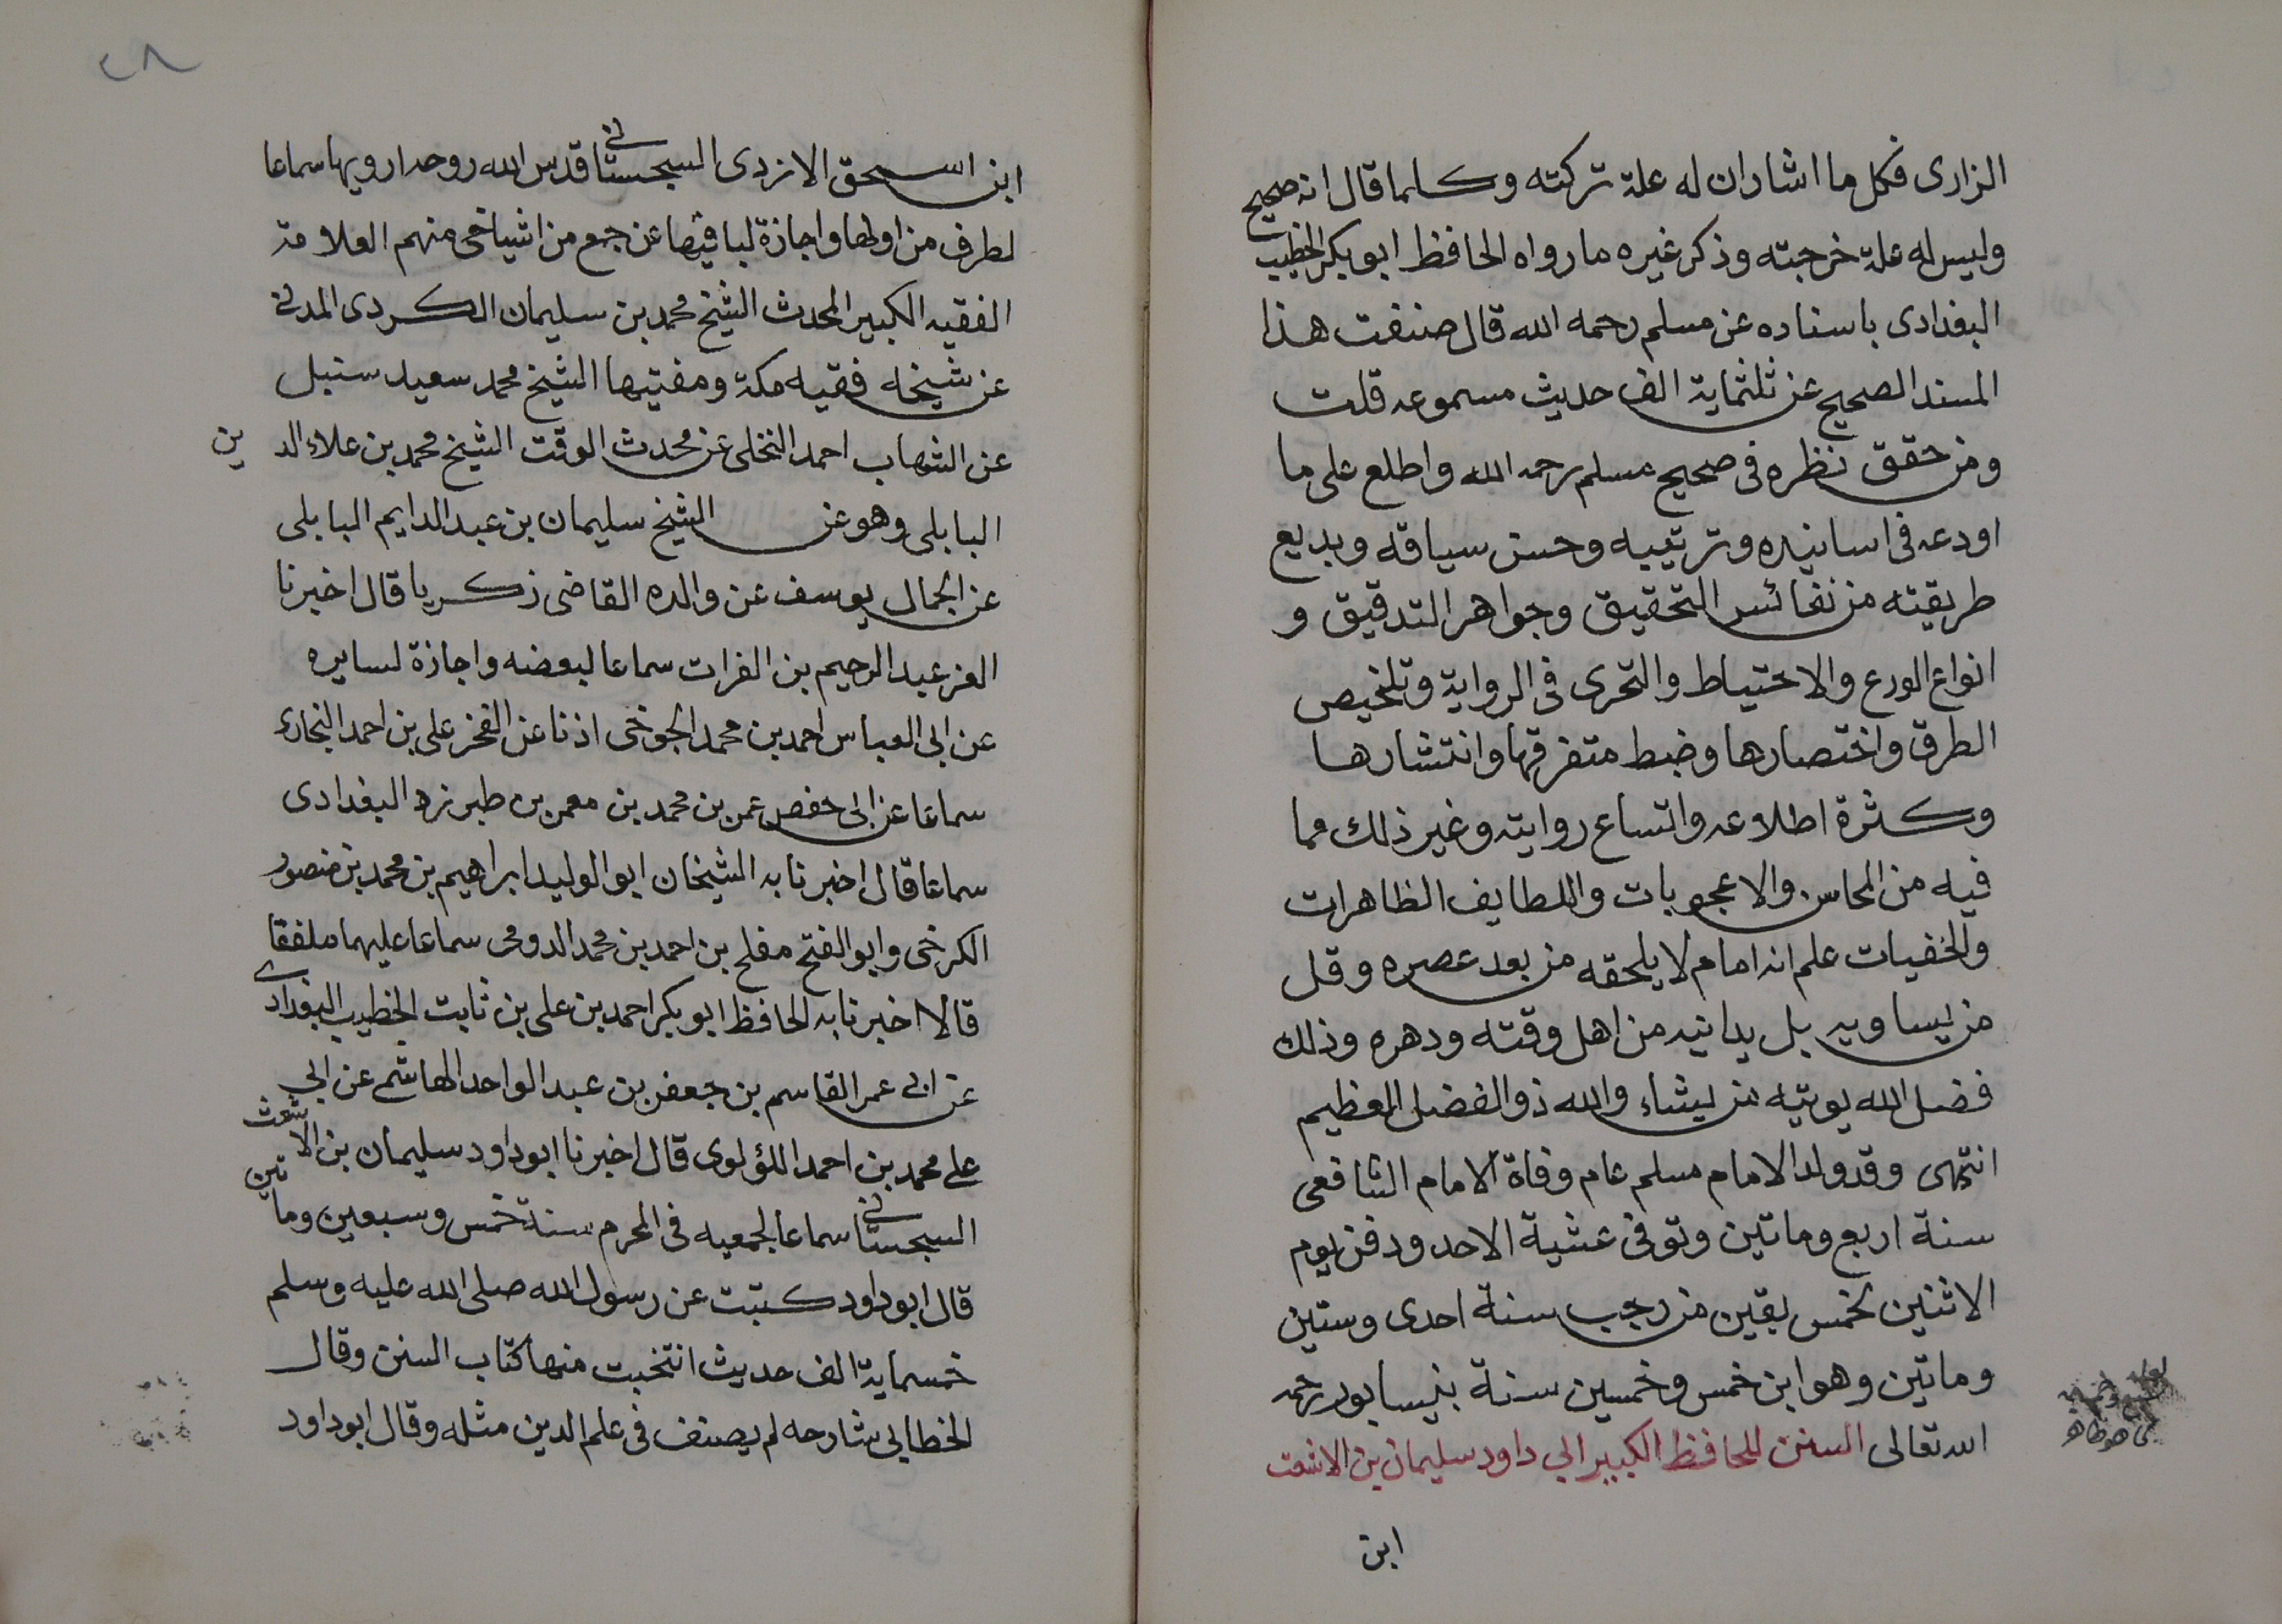 الزارى فكل ما اشار ان له علة تركته وكلما قال انه صحيح
وليس له علة خرجته وذكر غيره ما رواه الحافظ ابو بكر الخطيب
البغدادى باسناده عن مسلم رحمه الله قال صنفت هذا
المسند الصحيح عن ثلثماية الف حديث مسموعه قلت
ومن حقق نظره فى صحيح مسلم رحمه الله واطلع على ما
اودعه فى اسانيده وترتيبه وحسن سياقه وبديع
طريقته من نفائس التحقيق وجواهر التدقيق و
انواع الورع والاحتياط والتحرى فى الرواية وتلخيص
الطرق واختصارها وضبط متفرقها وانتشارها
وكثرة اطلاعه واتساع روايته وغير ذلك مما
فيه من المحاسن والاعجوبات واللطايف الظاهرات
والخفيات علم انه امام لا يلحقه من بعد عصره وقل
من يساويه بل يدانيه من اهل وقته ودهره وذلك
فضل الله يوتيه من يشاء والله ذو الفضل العظيم
انتهى وقد ولد الامام مسلم عام وفاة الامام الشافعى
سنة اربع وماتين وتوفى عشية الاحد ودفن يوم
الاثنين لخمس بقين من رجب سنة احدى وستين
وماتين وهو ابن خمس وخمسين سنة بنيسابور رحمه
الله تعالى السنن للحافظ الكبير ابي داود سليمان بن الاشعث
ابن
٢٨
ابن اسحق الازدى السجستانى قدس الله روحه ارويها سماعا
لطرف من اولها واجازة لباقيها عن جمع من اشياخى منهم العلامة
الفقيه الكبير المحدث الشيخ محمد بن سليمان الكردى المدنى
عن شيخه فقيه مكة ومفتيها الشيخ محمد سعيد سنبل
عن الشهاب احمد النخلى عن محدث الوقت الشيخ محمد بن علاء الدين
البابلى وهو عن الشيخ سليمان بن عبد الدايم البابلى
عن الجمال يوسف عن والده القاضى زكريا قال اخبرنا
العز عبد الرحيم بن الفرات سماعا لبعضه واجازة لسايره
عن ابى العباس احمد بن محمد الجوخى اذنا عن الفخر على بن احمد البخارى
سماعا عن ابى حفص عمر بن محمد بن معمر بن طبرزد البغدادى
سماعا قال اخبرنا به الشيخان ابو الوليد ابراهيم بن محمد بن منصور
الكرخى وابو الفتح مفلح بن احمد بن محمد الدومى سماعا عليهما ملفقا
قالا اخبرنا به الحافظ ابو بكر احمد بن على بن ثابت الخطيب البغدادى
عن ابى عمر القاسم بن جعفر بن عبد الواحد الهاشمى عن ابي
على محمد بن احمد اللؤلوى قال اخبرنا ابو داود سليمان بن الاشعث
السجستانى سماعا لجمعيه فى المحرم سنة خمس وسبعين وماتين
قال ابو داود كتبت عن رسول الله صلى الله عليه وسلم
خمسماية الف حديث انتخبت منها كتاب السنن وقال
الخطابى شارحه لم يصنف فى علم الدين مثله وقال ابو داود